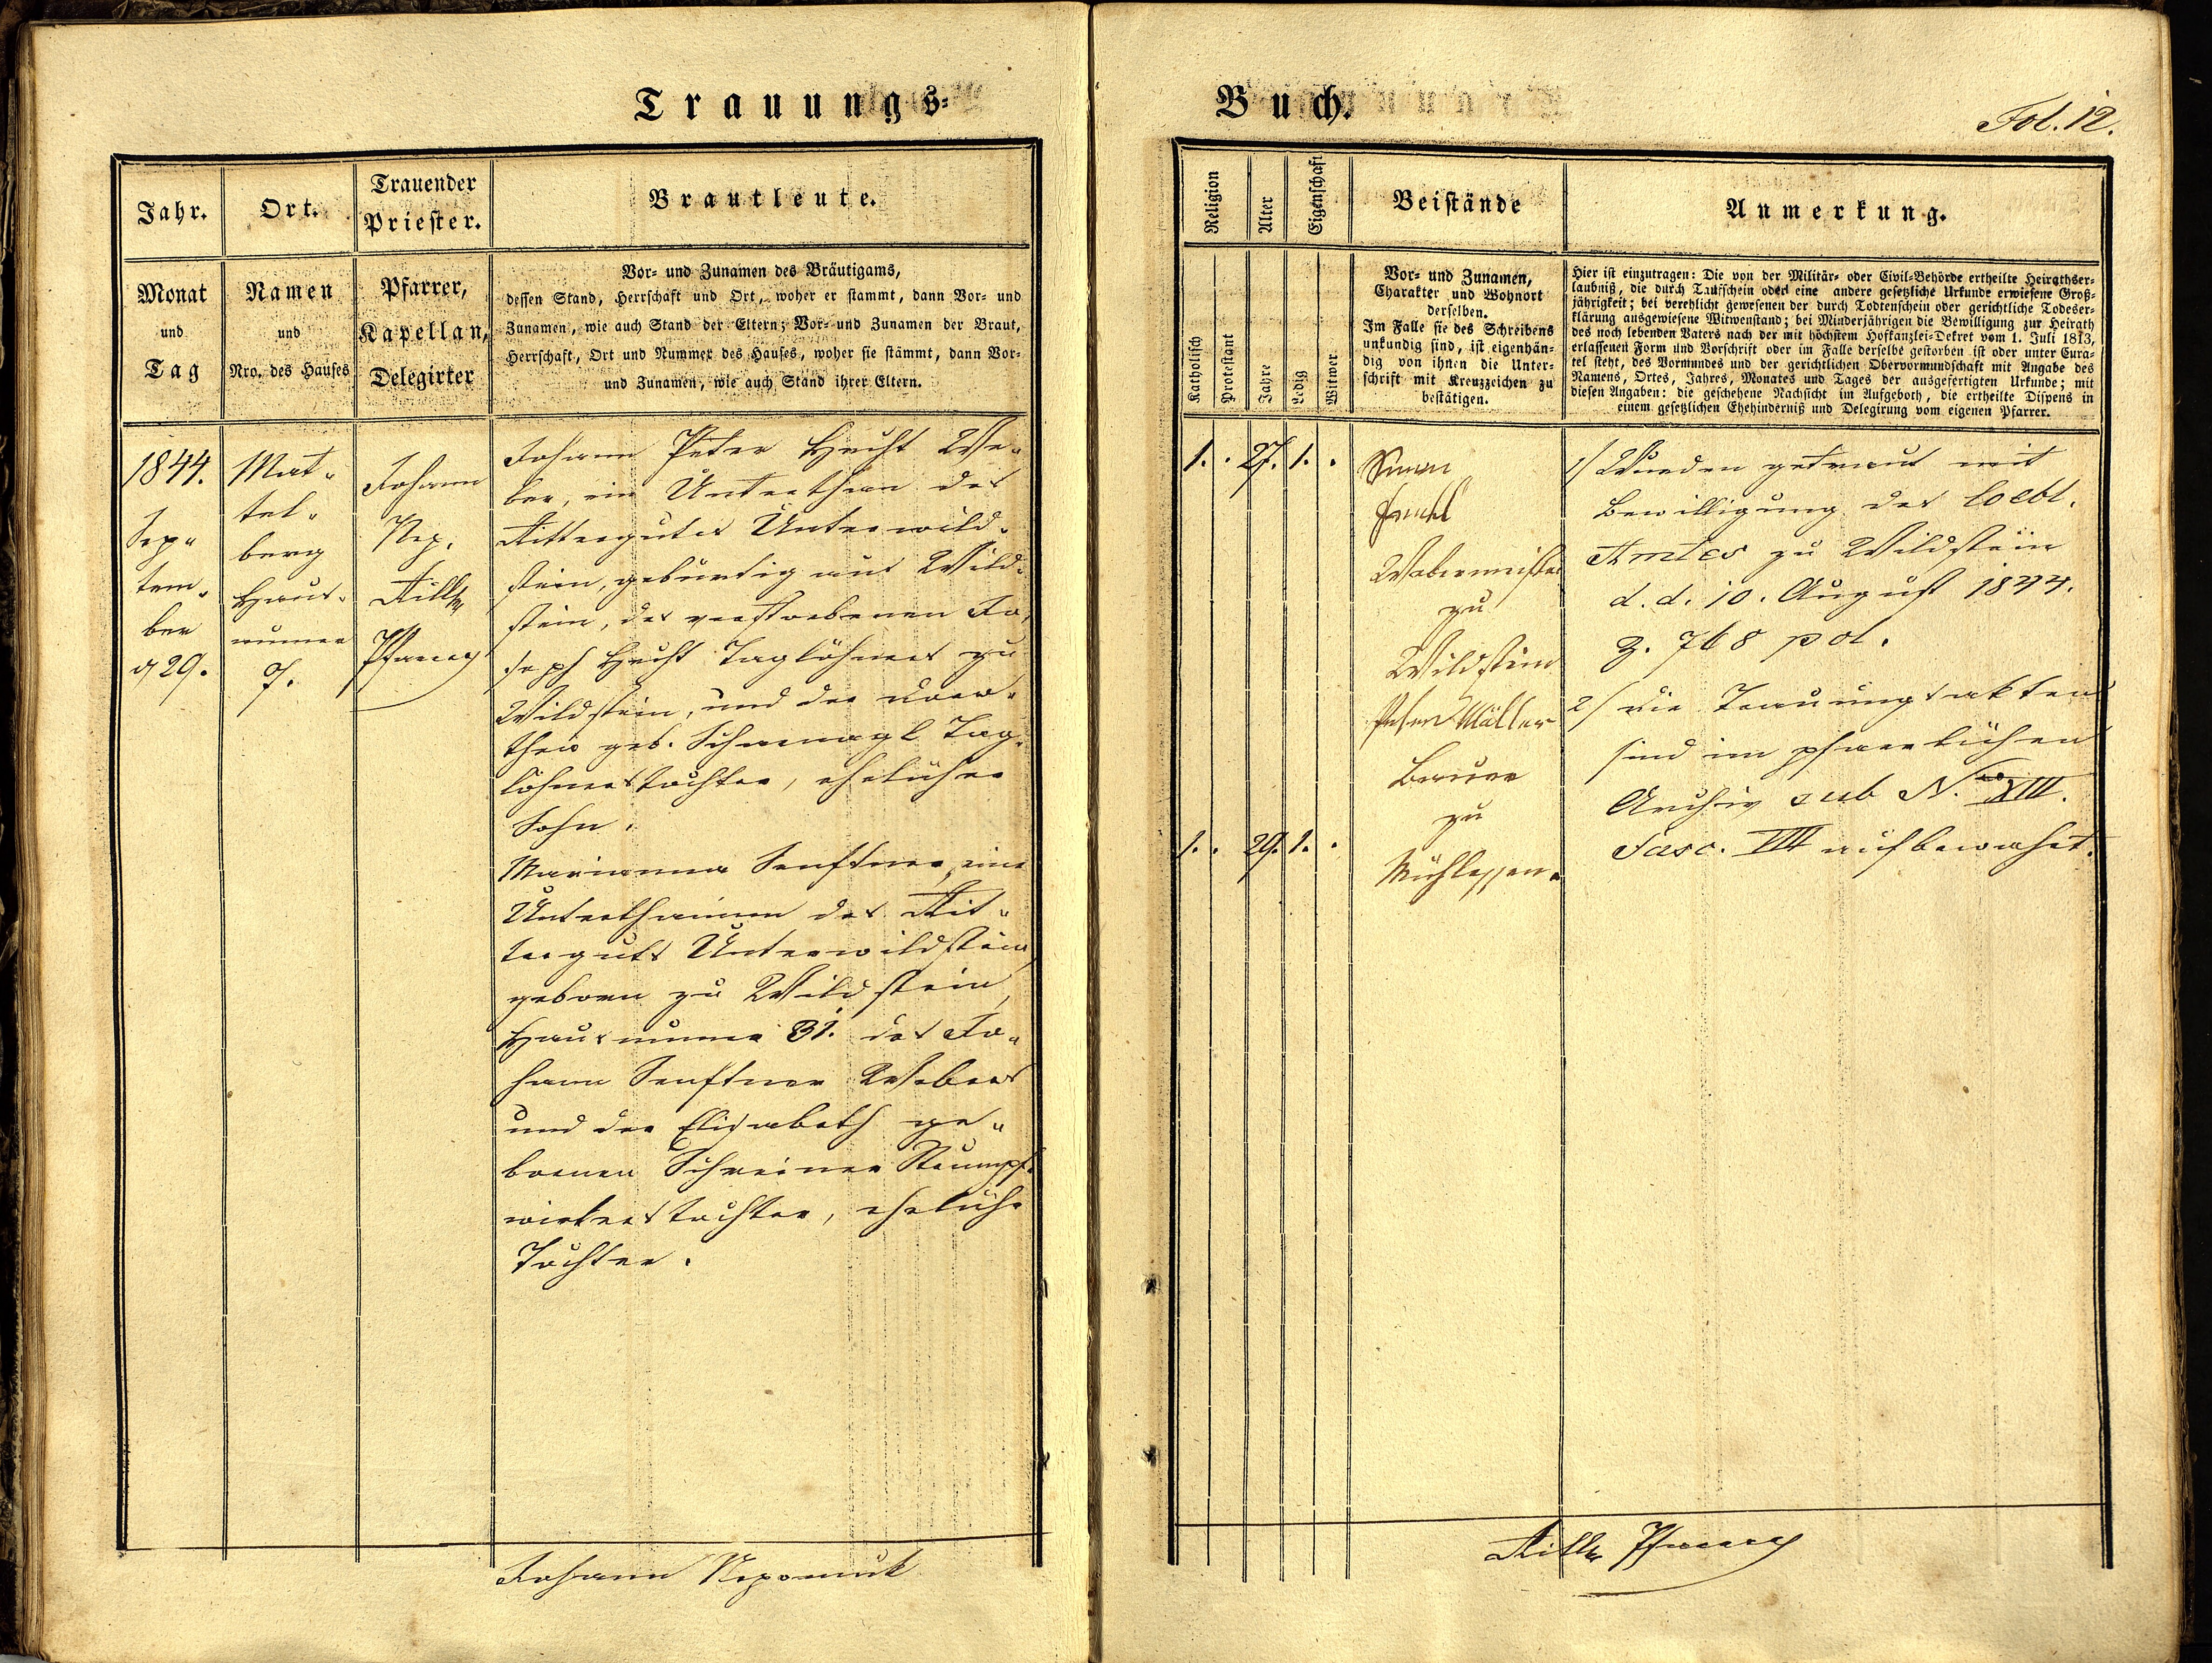 Trauungs=
Buch.
Fol. 12.
Jahr.
Ort.
Trauender
Priester.
Brautleute.
Monat
und
Tag
Namen
und
Nro. des Hauses
Pfarrer,
Kapellan,
Delegirter
Vor= und Zunamen des Bräutigams,
dessen Stand, Herrschaft und Ort, woher er stammt, dann Vor= und
Zunamen, wie auch Stand der Eltern; Vor= und Zunamen der Braut,
Herrschaft, Ort und Nummer des Hauses, woher sie stammt, dann Vor=
und Zunamen, wie auch Stand ihrer Eltern.
1844.
Sep„
tem„
ber
29.
Mat„
tel„
berg
Haus„
numer
7.
Johann
Nep.
Pfarrer
Johann Peter Hecht We„
ber, ein Unterthan des
Rittergutes Unterwild„
stein, gebürtig aus Wild„
stein, des verstorbenen Jo„
seph Hecht Taglöhners zu
Wildstein, und der Doro„
thea geb. Schwenagl Tag„
löhnerstochter, ehelicher
Sohn.
Marianna Senftner, eine
Unterthaninn des Rit„
terguts Unterwildstein,
geboren zu Wildstein,
Hausnumer 31. des Jo„
hann Senftner Webers
und der Elisabeth ge„
bornen Schreiner Strumpf„
wirkerstochter, eheliche
Tochter.
Johann Nepomuk
Religion
Alter
Eigenschaft
Beistände
Anmerkung.
Katholisch
Protestant
Jahre
Ledig
Witwer
Vor= und Zunamen,
Charakter und Wohnort
derselben.
Im Falle sie des Schreibens
unkundig sind, ist eigenhän=
dig von ihnen die Unter=
schrift mit Kreuzzeichen zu
bestätigen.
Hier ist einzutragen: Die von der Militär= oder Civil=Behörde ertheilte Heirathser=
laubniß, die durch Taufschein oder eine andere gesetzliche Urkunde erwiesene Groß=
jährigkeit; bei verehlicht gewesenen der durch Todtenschein oder gerichtliche Todeser=
klärung ausgewiesene Witwenstand; bei Minderjährigen die Bewilligung zur Heirath
des noch lebenden Vaters nach der mit höchstem Hofkanzlei=Dekret vom 1. Juli 1813,
erlassenen Form und Vorschrift oder im Falle derselbe gestorben ist oder unter Cura=
tel steht, des Vormundes und der gerichtlichen Obervormundschaft mit Angabe des
Namens, Ortes, Jahres, Monates und Tages der ausgefertigten Urkunde; mit
diesen Angaben: die geschehene Nachsicht im Aufgeboth, die ertheilte Dispens in
einem gesetzlichen Ehehinderniß und Delegirung vom eigenen Pfarrer.
1. . 27. 1. .
Simon
Webermeister
zu
Wildstein
Peter Müller
Bauer
zu
Mühlessen.
1. . 29. 1. .
1/ Wurden getraut mit
Bewilligung des löbl.
Amtes zu Wildstein
d. d. 10. August 1844.
Z. 768 pol.
2/ die Trauungsakten
sind im pfarrlichen
Archiv sub Nro XIII.
Fasc. VIII aufbewahrt.
Pfarrer